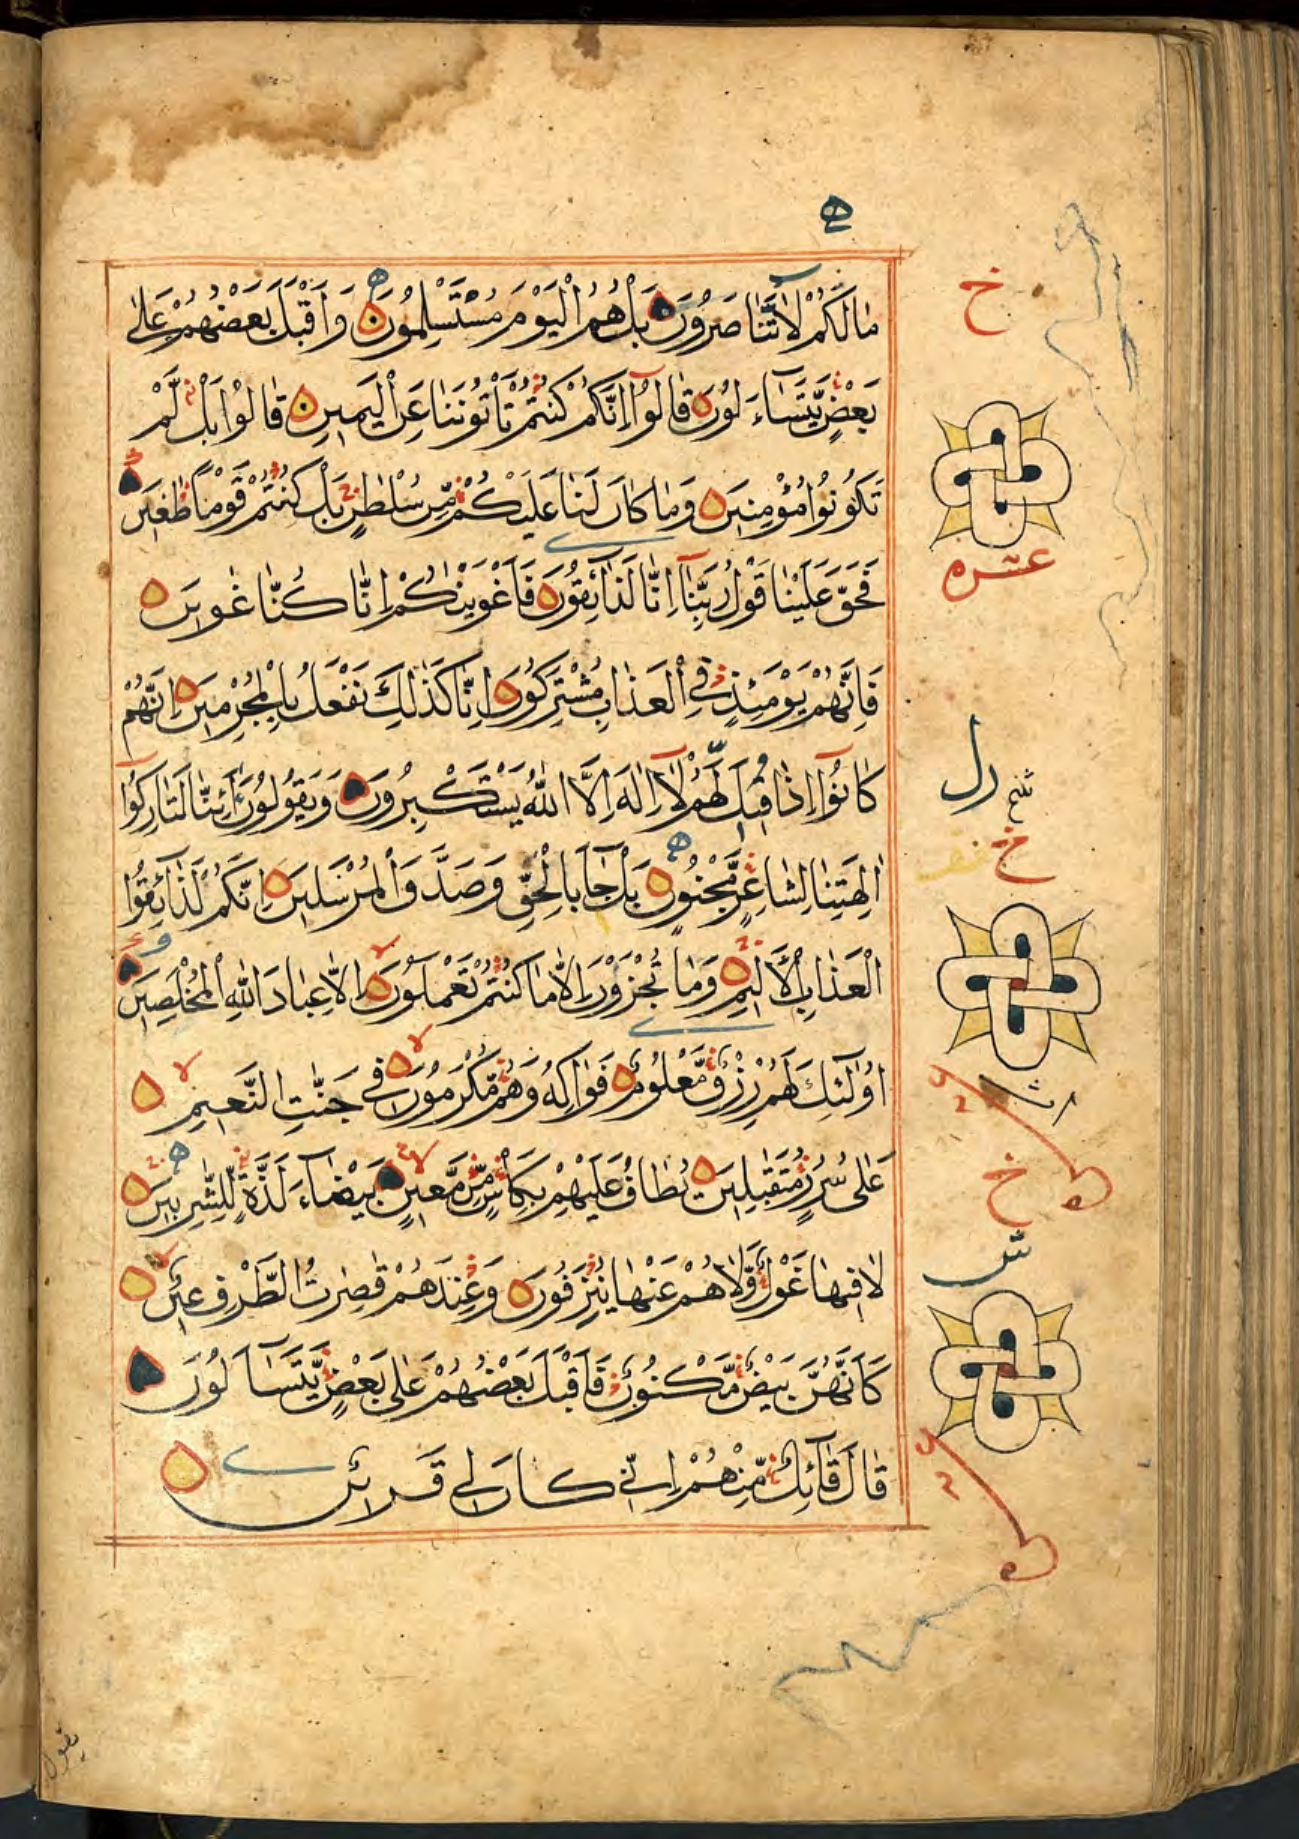 ه
مَالَكُمْ لَا تَنَاصَرُونَ بَلْ هُمُ الْيَوْمَ مُسْتَسْلِمُونَ وَاَقْبَلَ بَعْضُهُمْ عَلٰى
بَعْضٍ يَّتَسَآءَ لُونَ قَالُوْٓا اِنَّكُمْ كُنْتُمْ تَأْتُونَنَا عَنِ الْيَمِينِ قَالُوْا بَلْ لَّمْ
تَكُوْنُوْا مُؤْمِنِينَ وَمَا كَانَ لَنَا عَلَيْكُمْ مِّنْ سُلْطٰنٍ بَلْ كُنْتُمْ قَوْمًا طٰغِينَ
فَحَقَّ عَلَيْنَا قَوْلُ رَبِّنَآ اِنَّا لَذَآئِقُونَ فَاَغْوَيْنٰكُمْ اِنَّا كُنَّا غٰوِينَ
فَاِنَّهُمْ يَوْمَئِذٍ فِي الْعَذَابِ مُشْتَرِكُونَ اِنَّا كَذٰلِكَ نَفْعَلُ بِالْمُجْرِمِينَ اِنَّهُمْ
كَانُوْٓا اِذَا قِيلَ لَهُمْ لَآ اِلٰهَ اِلَّا اللّٰهُ يَسْتَكْبِرُونَ وَيَقُولُونَ اَئِنَّا لَتَارِكُوْٓا
اٰلِهَتِنَا لِشَاعِرٍ مَّجْنُونٍ بَلْ جَآءَ بِالْحَقِّ وَصَدَّقَ الْمُرْسَلِينَ اِنَّكُمْ لَذَآئِقُوْا
الْعَذَابِ الْاَلِيمِ وَمَا تُجْزَوْنَ اِلَّا مَا كُنْتُمْ تَعْمَلُونَ اِلَّا عِبَادَ اللّٰهِ الْمُخْلَصِينَ
اُولٰٓئِكَ لَهُمْ رِزْقٌ مَّعْلُومٌ فَوَاكِهُ وَهُمْ مُّكْرَمُونَ فِي جَنّٰتِ النَّعِيمِ
عَلٰى سُرُرٍ مُّتَقٰبِلِينَ يُطَافُ عَلَيْهِمْ بِكَأْسٍ مِّنْ مَّعِينٍ بَيْضَآءَ لَذَّةٍ لِّلشّٰرِبِينَ
لَا فِيهَا غَوْلٌ وَّلَا هُمْ عَنْهَا يُنْزَفُونَ وَعِنْدَهُمْ قٰصِرٰتُ الطَّرْفِ عِينٌ
كَاَنَّهُنَّ بَيْضٌ مَّكْنُونٌ فَاَقْبَلَ بَعْضُهُمْ عَلٰى بَعْضٍ يَّتَسَآءَ لُونَ
قَالَ قَآئِلٌ مِّنْهُمْ اِنِّي كَانَ لِي قَرِينٌ
خ
عشره
خ
خ
يقول